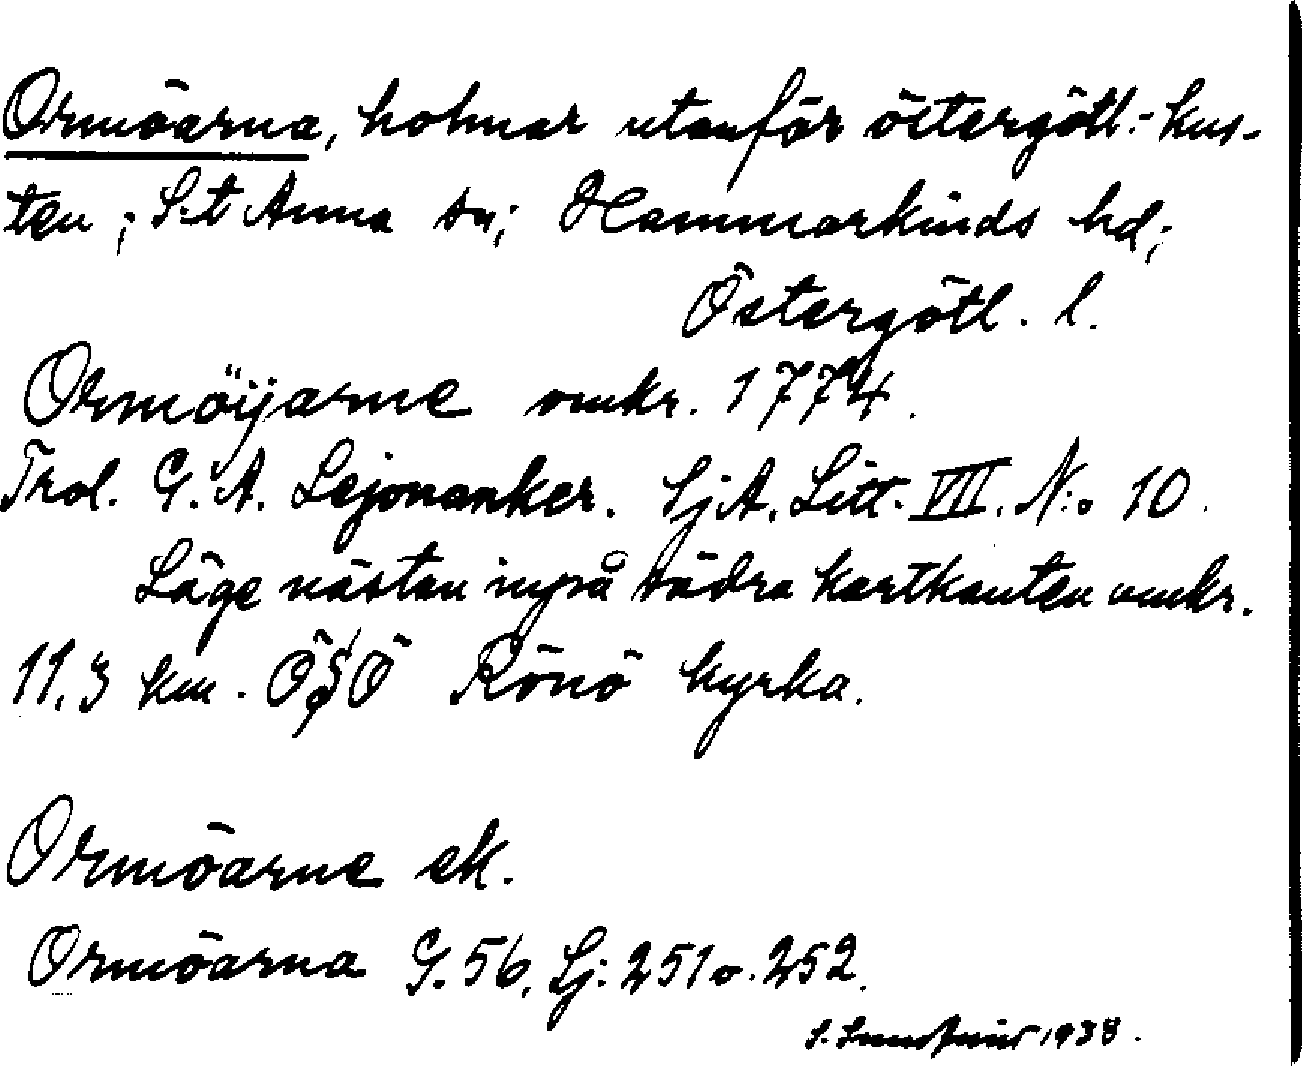 Ormöarna, holmar utanför östergötl.-kus-
ten; S:t Anna sn; Hammarkinds hd;
Östergötl. l.
Ormöijarne omkr. 1774.
Trol. G. A. Lejonanker. SjA. Litt. VII. N:o 10.
Läge nästan inpå södra kartkanten omkr.
11,3 km. ÖSÖ Rönö kyrka.
Ormöarne ek.
Ormöarna G. 56, Sj: 251 o. 252.
S. 1938.